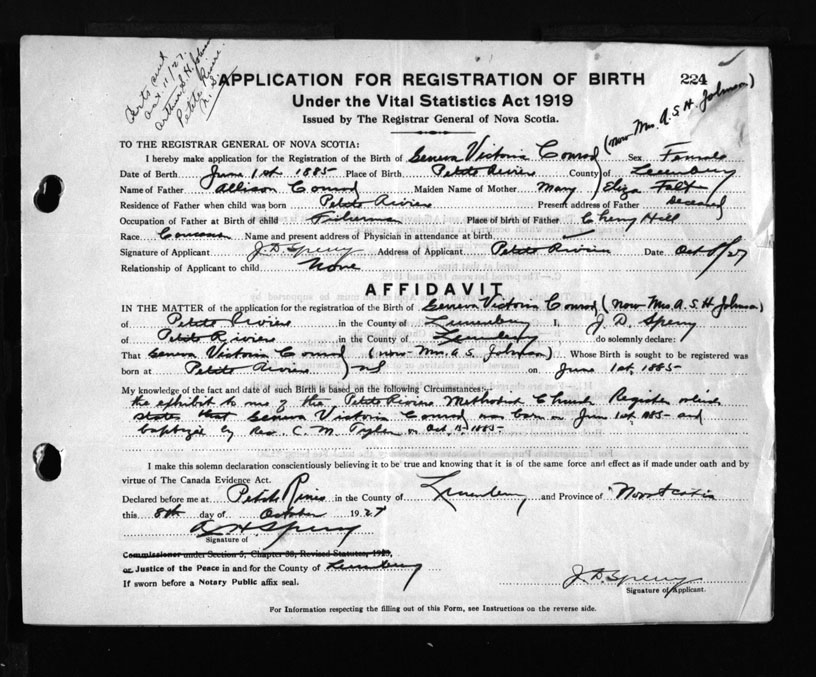 Certs sent
Oct. 11/27.
Arthur H. Johnson
Petite Riviere
N.S.
APPLICATION FOR REGISTRATION OF BIRTH 224
Under the Vital Statistics Act 1919
Issued by The Registrar General of Nova Scotia.
(now Mrs. A. S. H. Johnson)
TO THE REGISTRAR GENERAL OF NOVA SCOTIA:
I hereby make application for the Registration of the Birth of Geneva Victoria Conrod Sex Female
Date of Birth June 1st 1885- Place of Birth Petite Riviere County of Lunenburg
Name of Father Allison Conrod Maiden Name of Mother Mary Eliza
Residence of Father when child was born Petite Riviere Present address of Father deceased
Occupation of Father at Birth of child Fisherman Place of birth of Father Cherry Hill
Race Name and present address of Physician in attendance at birth
Signature of Applicant J. D. Sperry Address of Applicant Petite Riviere Date Oct 8/27
Relationship of Applicant to child None
AFFIDAVIT
IN THE MATTER of the application for the registration of the Birth of Geneva Victoria Conrod (now Mrs A. S. H Johnson)
of Petite Riviere in the County of Lunenburg I, J. D. Sperry
of Petite Riviere in the County of Lunenburg do solemnly declare:
That Geneva Victoria Conrod (now Mrs A. S. Johnson) Whose Birth is sought to be registered was
born at Petite Riviere NS on June 1st, 1885-
My knowledge of the fact and date of such Birth is based on the following Circumstances:
the exhibit to me of the Petite Riviere Methodist Church Register which
states that Geneva Victoria Conrod was born on June 1st, 1885- and
baptized by Rev. C. M. Tyler on Oct 15- 1885-
I make this solemn declaration conscientiously believing it to be true and knowing that it is of the same force and effect as if made under oath and by
virtue of The Canada Evidence Act.
Declared before me at Petite Riviere in the County of Lunenburg and Province of Nova Scotia
this 8th day of October 1927
H Sperry
Signature of
Commissioner under Section 5, Chapter 38, Revised Statutes, 1923,
or Justice of the Peace in and for the County of Lunenburg
If sworn before a Notary Public affix seal.
J. D. Sperry
Signature of Applicant.
For Information respecting the filling out of this Form, see Instructions on the reverse side.